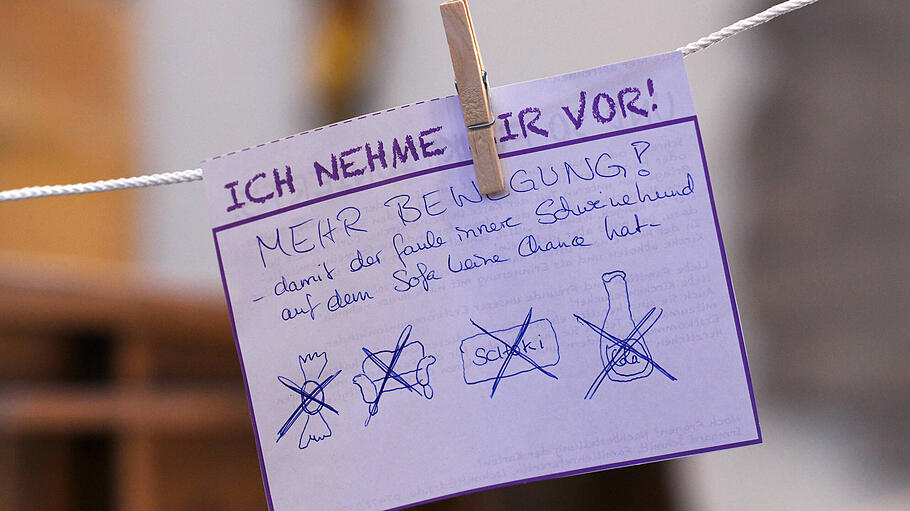 ICH NEHME IR VOR!
MEHR BEWEGUNG!
- damit der faule innere Schweinehund
auf dem Sofa keine Chance hat -
SCHOKI